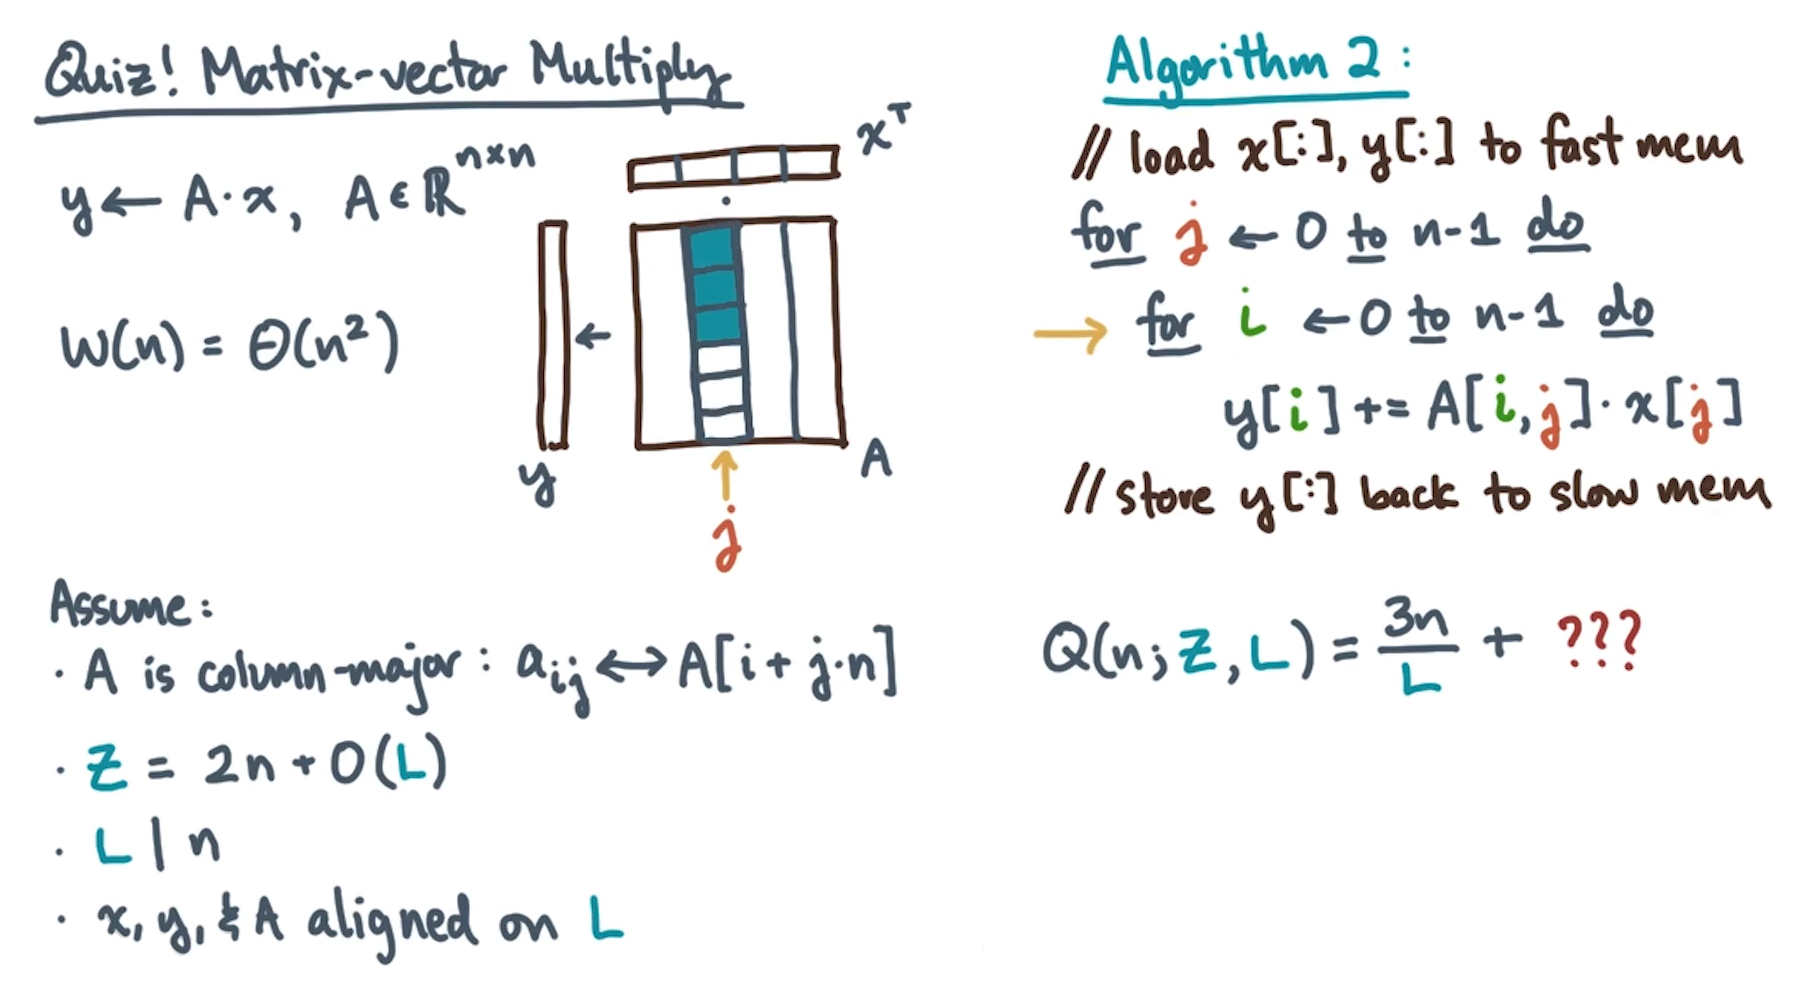 Quiz! Matrix-vector Multiply
y ← A·x, A ∈ ℝⁿˣⁿ
W(n) = Θ(n²)
xᵀ
·
←
y
A
j
Assume:
· A is column-major: aᵢⱼ ↔ A[i + j·n]
· Z = 2n + O(L)
· L | n
· x, y, & A aligned on L
Algorithm 2:
// load x[:], y[:] to fast mem
for j ← 0 to n-1 do
→ for i ← 0 to n-1 do
y[i] += A[i,j]· x[j]
// store y[:] back to slow mem
Q(n; Z, L) = 3n/L + ???